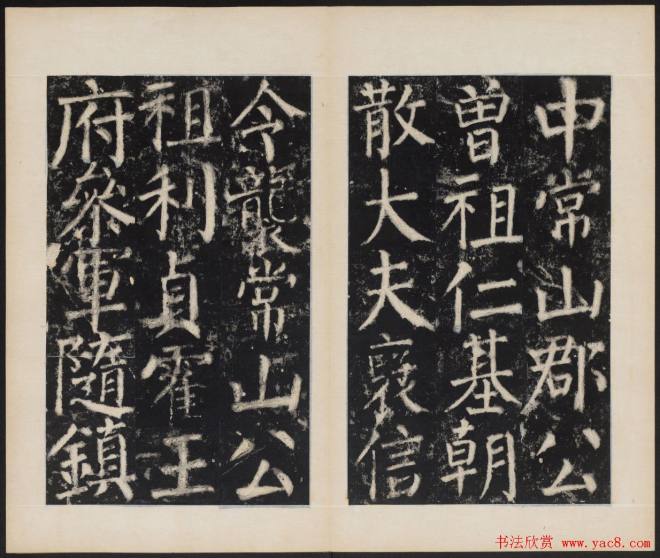 中常山郡公
曽祖仁基朝
散大夫襄信
令襲常山公
祖利貞霍王
府叅軍隨鎮
书法欣赏 www.yac8.com